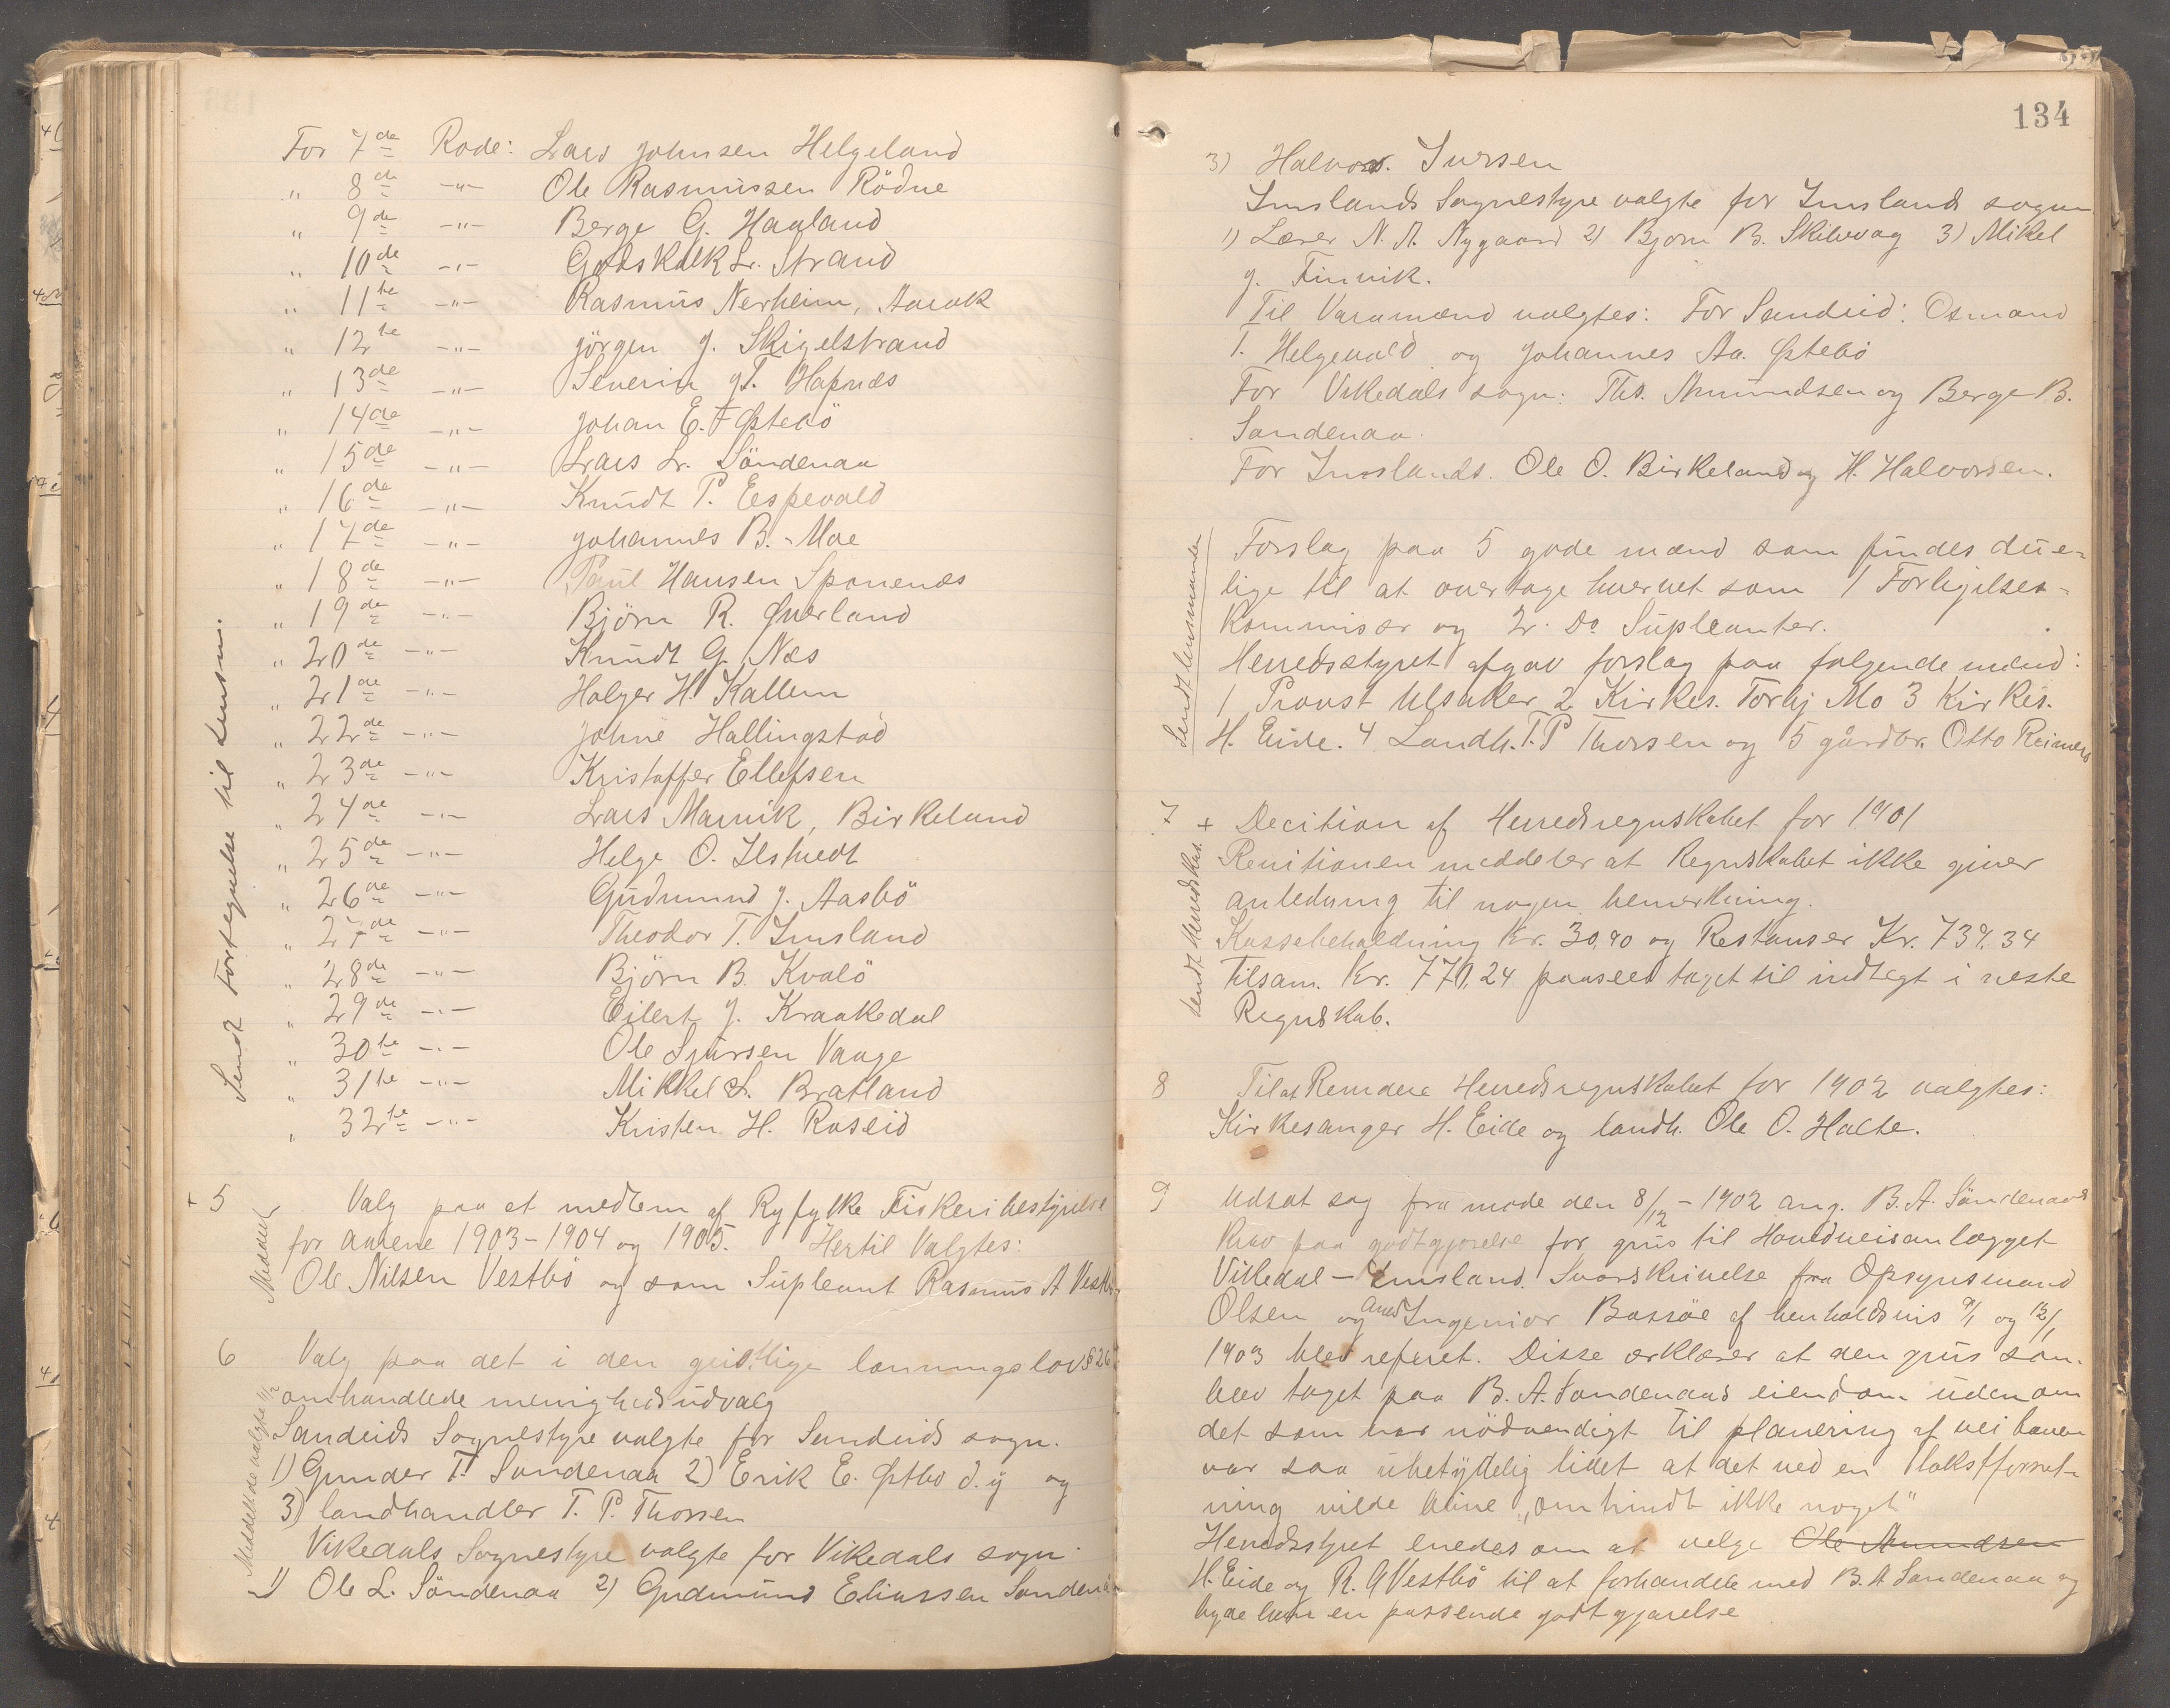 For 7de Rode: Lars Johnsen Helgeland
" 8de -"- Ole Rasmussen Rödne
" 9de -"- Berge G. Hagland
" 10de -"- Godskalk L. Strand
" 11te -"- Rasmus Nerheim, Aarak
" 12te -"- Jörgen J. Skigelstrand
" 13de -"- Severin J.T. Hapnæs
" 14de -"- Johan E. Østebö
" 15de -"- Lars L. Söndenaa
" 16de -"- Knudt P. Espevold
" 17de -"- Johannes B. Moe
" 18de -"- Paul Hansen Sponenæs
" 19de -"- Björn R. Øverland
" 20de -"- Knudt G. Næs
" 21de -"- Holger H. Kallem
" 22de -"- Johne Hallingstad
" 23de -"- Kristoffer Ellefsen
" 24de -"- Lars Marvik, Birkeland
" 25de -"- Helge O. Ilstvedt
" 26de -"- Gudmund J. Aasbö
" 27de -"- Theodor T. Imsland
" 28de -"- Björn B. Kvalö
" 29de -"- Eilert J. Kraakedal
" 30te -"- Ole Sjursen Vaage
" 31te -"- Mikkel L. Bratland
" 32te -"- Kristen H. Roseid
Sendt Fortegnelse til Lensm.
+ 5 Valg paa et medlem af Ryfylke Fiskeribestyrelse
for aarene 1903-1904 og 1905. Hertil Valgtes:
Ole Nilsen Vestbö og som Supleant Rasmus A Vestbö
Meddelt
6 Valg paa det i den geistlige lønningslov § 26
omhandlede menighedsudvalg
Sandeids Sognestyre valgte for Sandeids sogn.
1) Gunder T. Sandenaa 2) Erik E. Østbø d.y og
3) landhandler T. P. Thorsen
Vikedals Sognestyre valgte for Vikedals sogn
1) Ole L. Söndenaa 2) Gudmund Eliassen Sondenaa
Meddelt de valgte 11/2
134
3) Halvor Iversen
Imslands Sognestyre valgte for Imslands sogn
1) Lærer N. A. Nygaard 2) Bjørn B. Skilvvag 3) Mikel
J. Finvik.
Til Varamænd valgtes: For Sandeid: Osmand
T. Helgevold og Johannes Aa. Østebö
For Vikedals sogn: Ths. Amundsen og Berge B.
Sandenaa.
For Imslands. Ole O. Birkeland og H. Halvorsen.
Forslag paa 5 gode mænd som findes due-
lige til at overtage hvervet som 1 Forligelses-
Kommisær og 2. Do Supleanter.
Herredsstyret afgav forslag paa følgende mænd:
1 Provst Ulsaker 2 Kirkes. Torbj Mo 3 Kirkes.
H. Eide. 4 Landh. T. P Thorsen og 5 gårdbr. Otto Reimers
Sendt lensmanden
7 + Decition af Herredsregnskabet for 1901
Revitionen meddeler at Regnskabet ikke giver
anledning til nogen bemerkning.
Kassebeholdning Kr. 30,90 og Restanser Kr. 739.34
Tilsam. Kr. 770,24 paasees taget til indtægt i neste
Regnskab.
Sendt Herredskas.
8 Til at Revidere Herredsregnskabet for 1902 valgtes:
Kirkesanger H. Eide og landh. Ole O. Halte.
9 Udsat sag fra møde den 8/12 - 1902 ang. B. A. Söndenaas
Krav paa godtgjorelse for grus til Hovedveisanlægget
Vikedal - Imsland. Svarskrivelse fra Opsynsmand
Olsen og Amts Ingeniør Bassöe af henholdsvis 9/1 og 13/1
1903 blev referet. Disse erklærer at den grus som
blev taget paa B. A. Sandenaas eiendom uden om
det som var nödvendigt til planering af vei banen
var saa ubetydelig lidet at det ved en
ning vilde blive "omtrindt ikke noget"
Herredsstyret enedes om at velge Ole Amundsen
H. Eide og R. A Vestbö til at forhandle med B. A Sandenaa og
byde ham en passende godtgjørelse